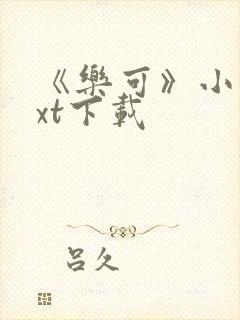 《樂可》小
xt下載
呂久